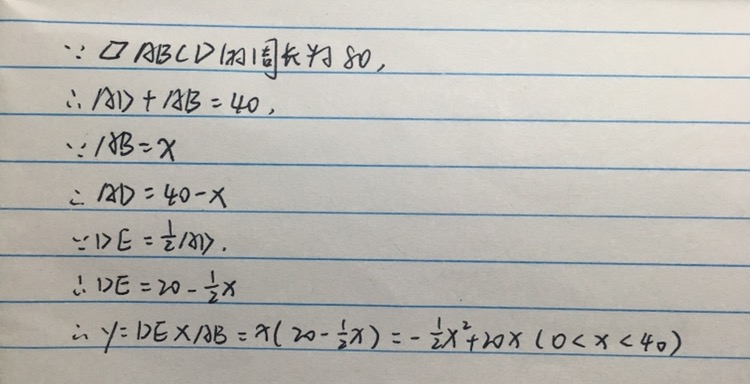 ∵ ▱ABCD的周长为80,
∴AD+AB=40,
∵AB=x
∴AD=40-x
∵DE=½AD.
∴DE=20-½x
∴y=DE×AB=x(20-½x)=-½x²+20x(0<x<40)